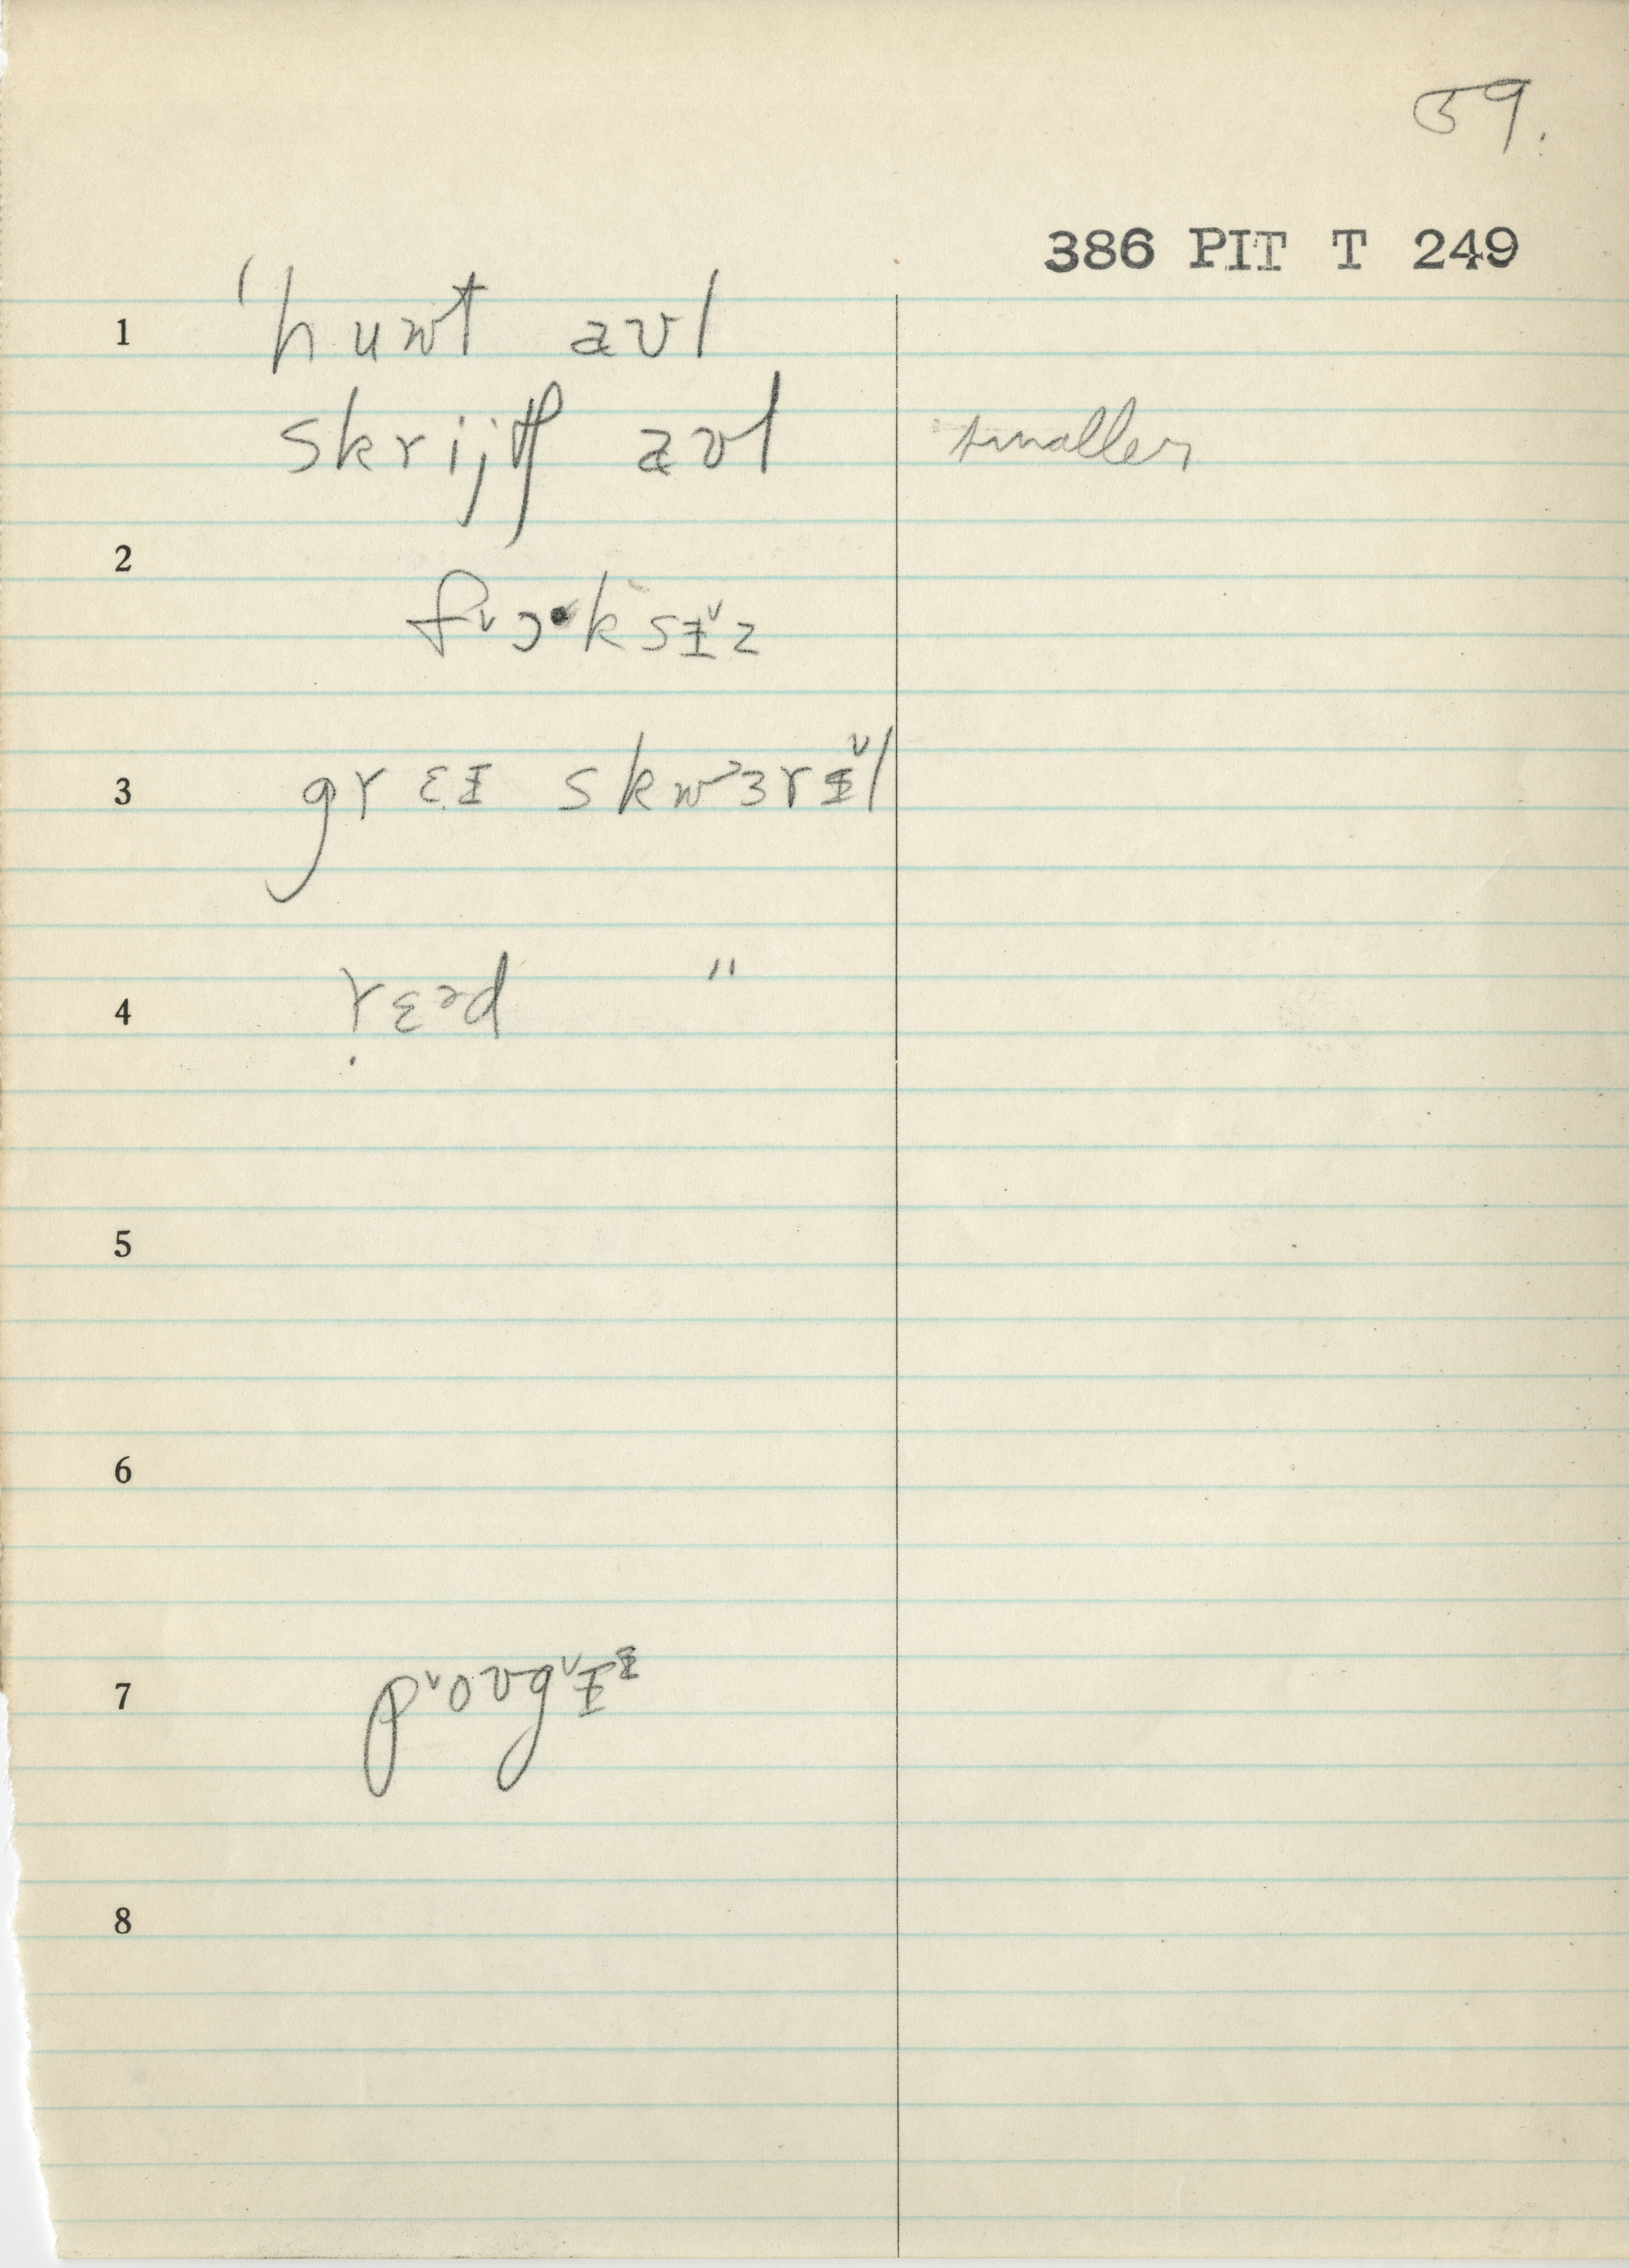 59.
386 PIT T 249
1 'huwt aʊl
skrijtʃ aʊl smaller
2
fᵛɔ•ksɪ̵ˇz
3 grɛɪ̵ skwᵊɜrɪ̵ˇl
4 ṛɛᵊd "
5
6
7 pˇoʊgˇɪ̵ᶤ̵
8